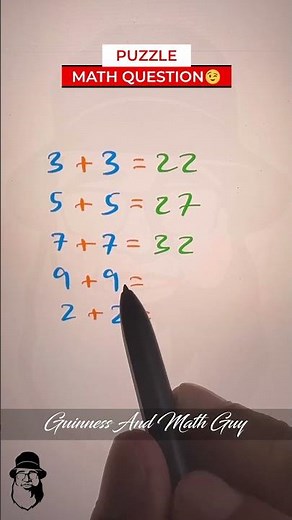 PUZZLE
MATH QUESTION😉
3 + 3 = 22
5 + 5 = 27
7 + 7 = 32
9 + 9 =
2 + 2 =
Guinness And Math Guy